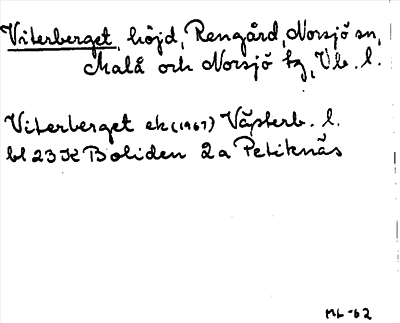 Viterberget, höjd, Rengård, Norsjö sn,
Malå och Norsjö tg, Vb. l.
Viterberget ek (1967) Västerb. l.
bl 23 K Boliden 2a Petiknäs
ML -62